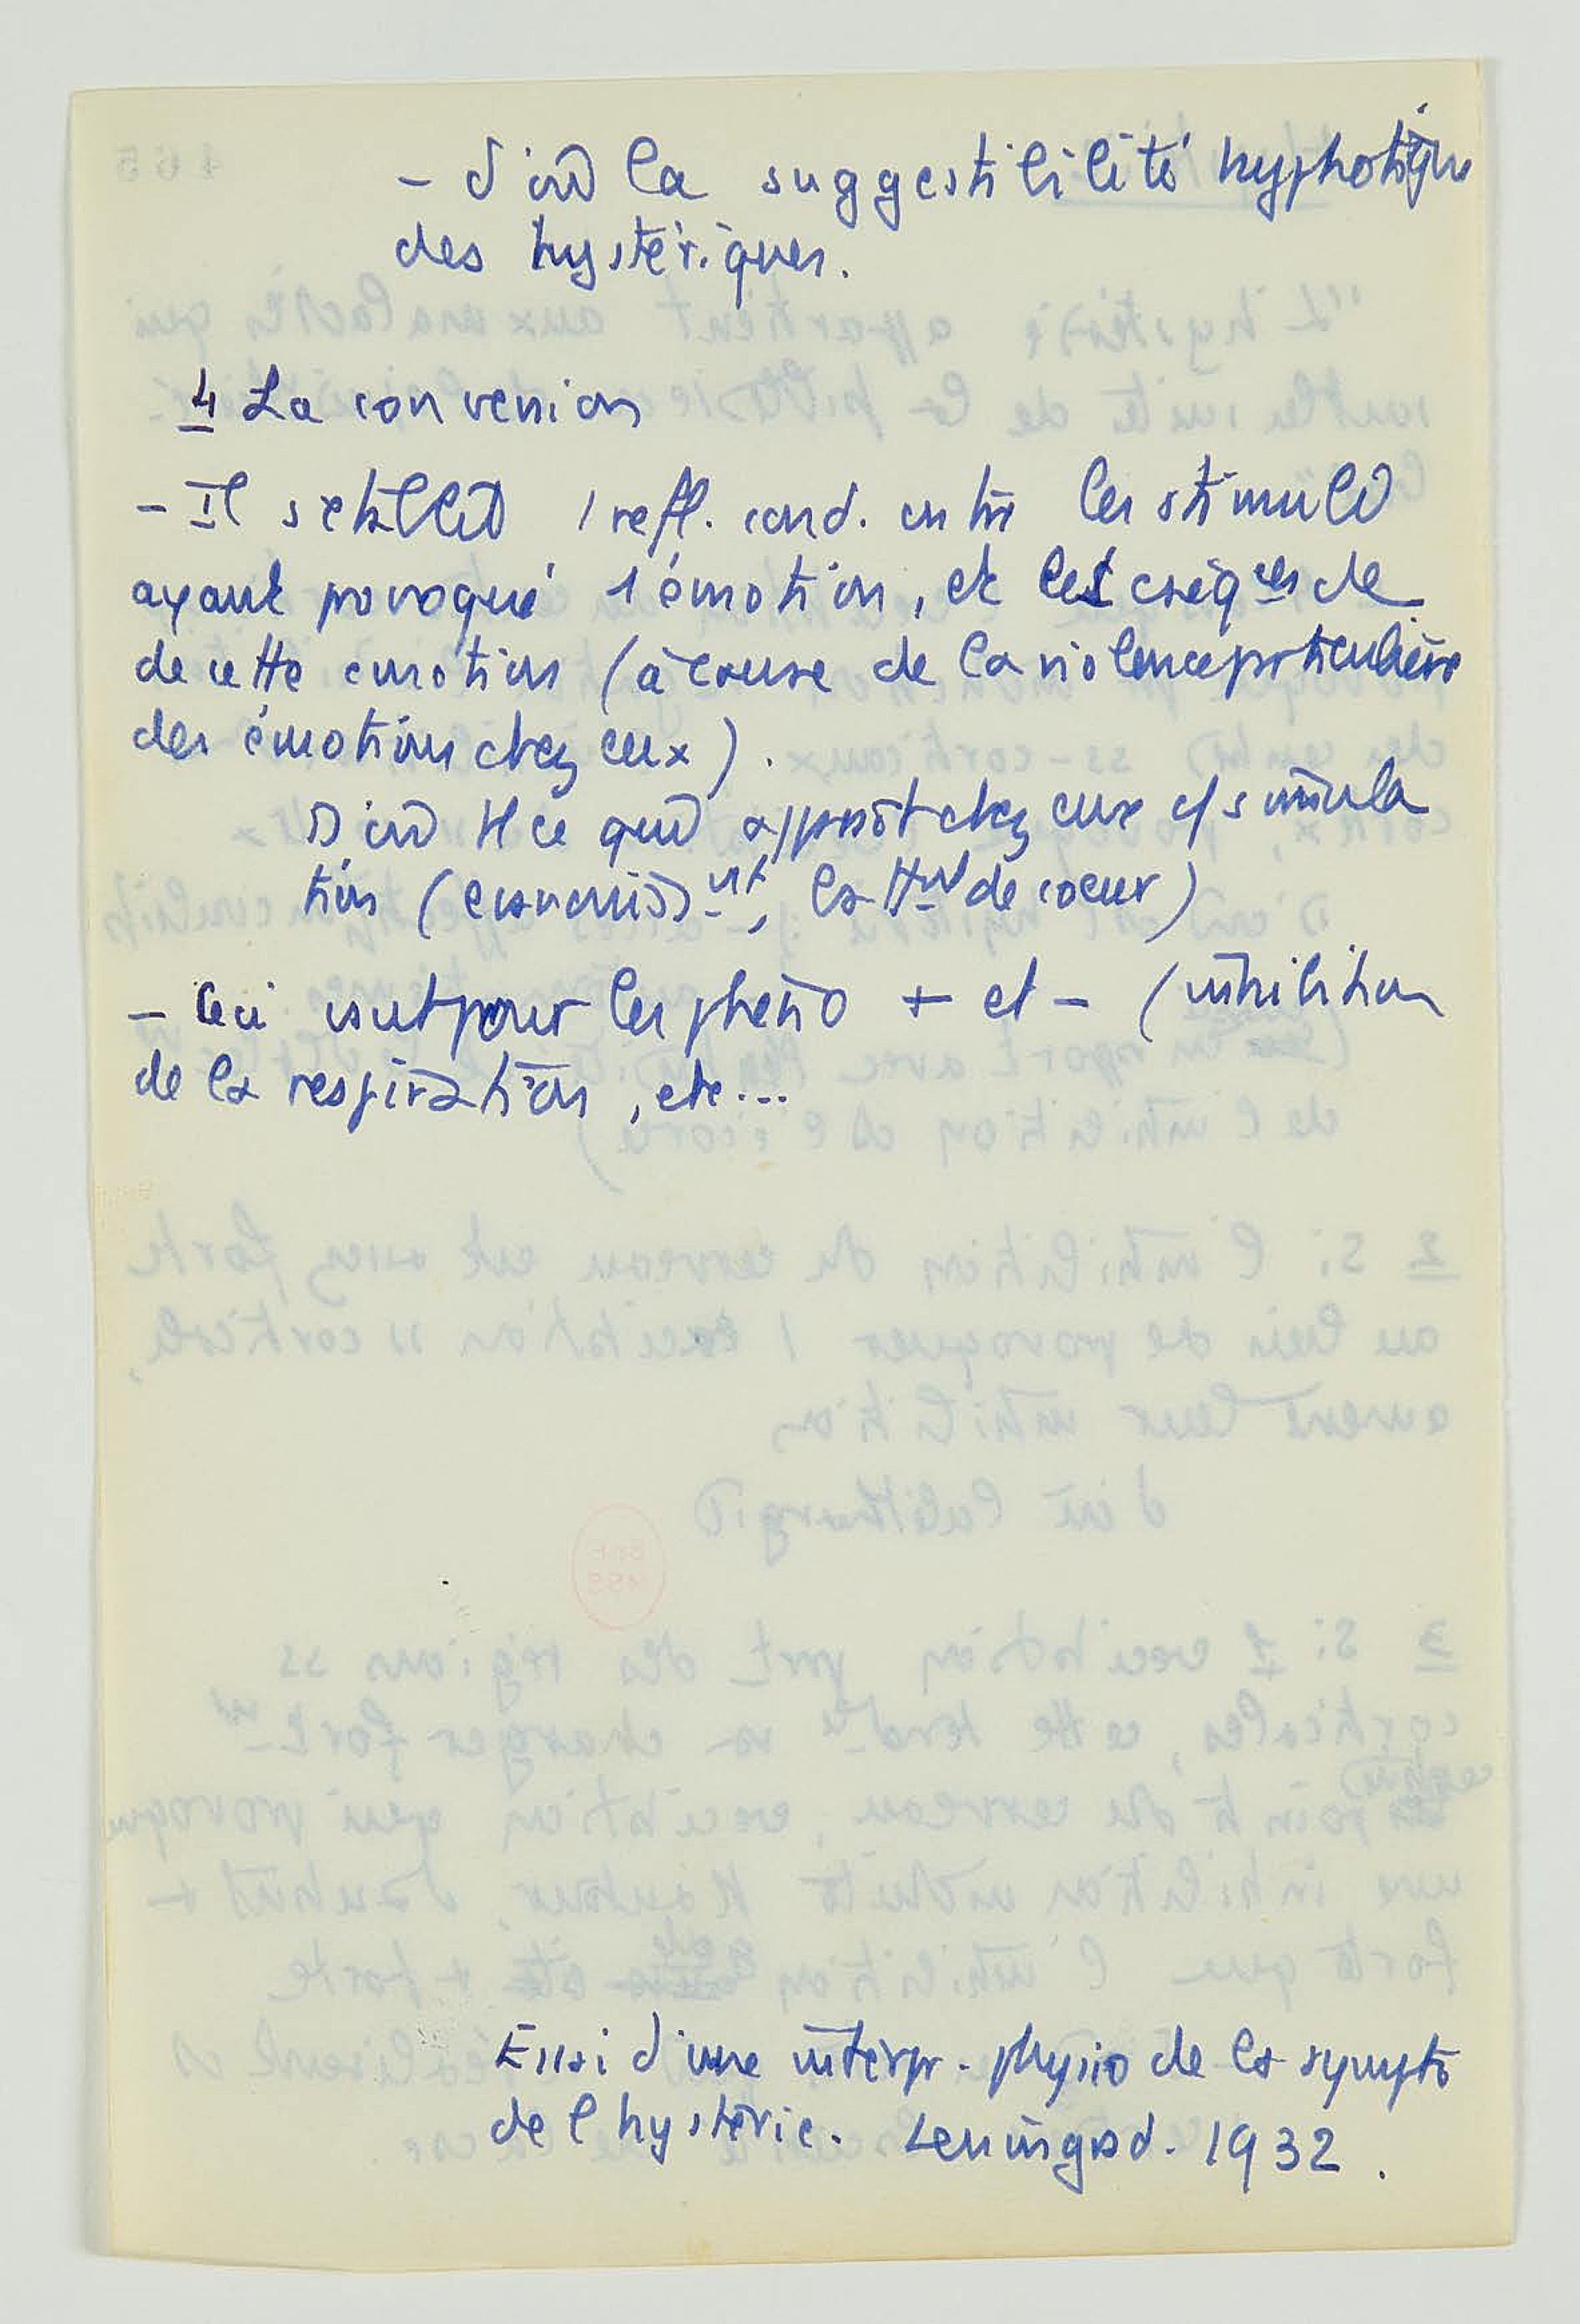 - d'où la suggestibilité hypnotique
des hystériques.
4 La conversion
- Il s'établit 1 refl. cond. entre les stimuli
ayant provoqué 1 émotion, et les cséqces de
de cette émotion (à cause de la violence particulière
des émotions chez eux).
D'où tt ce qui apparaît chez eux c/ simula
tion (évanouissnt, de coeur)
- Ceci vaut pour les phéno + et - (inhibition
de la respiration, etc...
Essai d'une interpr. physio de la sympto
de l hystérie. Leningrad. 1932.